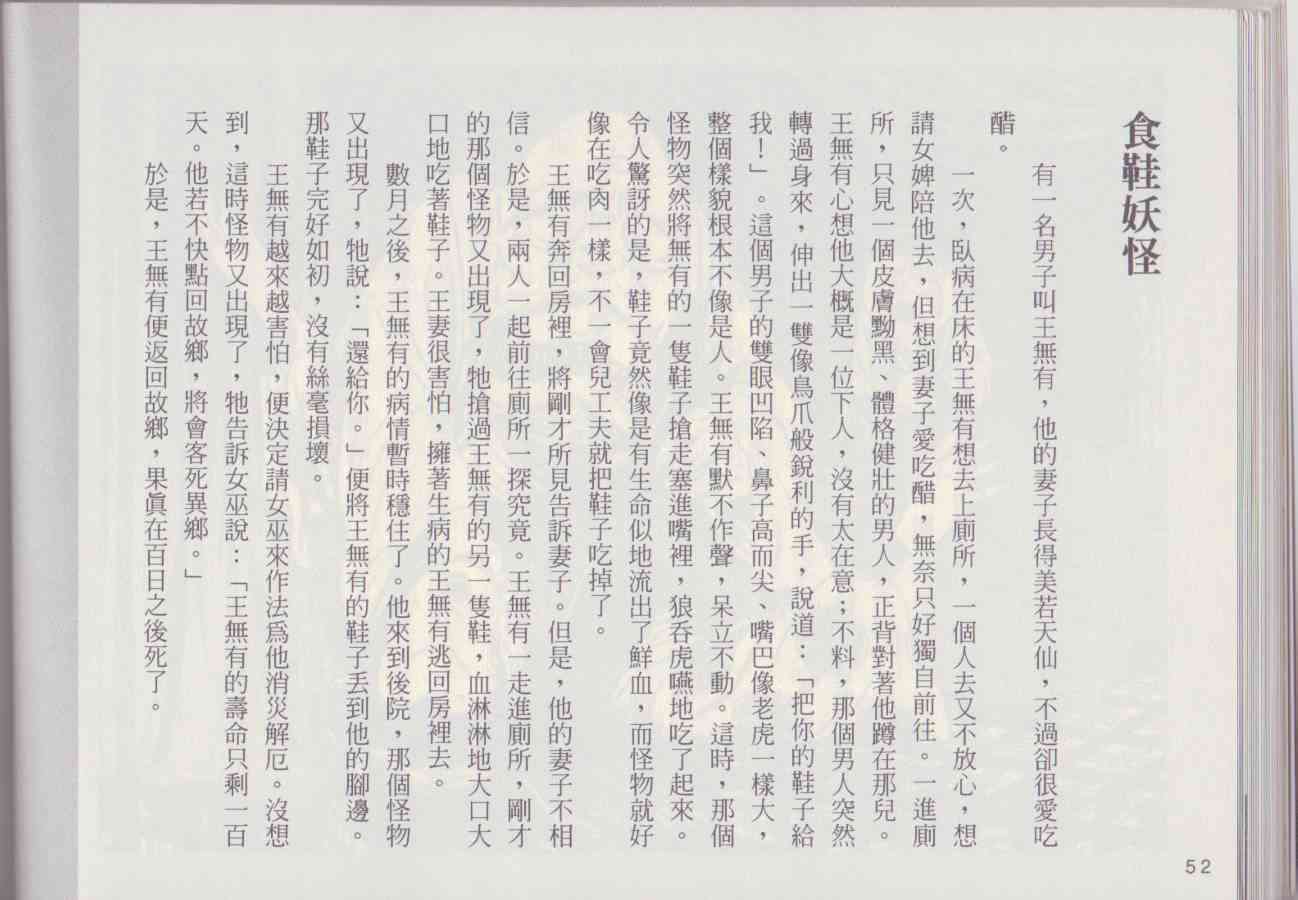 食鞋妖怪
有一名男子叫王無有，他的妻子長得美若天仙，不過卻很愛吃
醋。
一次，臥病在床的王無有想去上廁所，一個人去又不放心，想
請女婢陪他去，但想到妻子愛吃醋，無奈只好獨自前往。一進廁
所，只見一個皮膚黝黑、體格健壯的男人，正背對著他蹲在那兒。
王無有心想他大概是一位下人，沒有太在意；不料，那個男人突然
轉過身來，伸出一雙像鳥爪般銳利的手，說道：「把你的鞋子給
我！」。這個男子的雙眼凹陷、鼻子高而尖、嘴巴像老虎一樣大，
整個樣貌根本不像是人。王無有默不作聲，呆立不動。這時，那個
怪物突然將無有的一隻鞋子搶走塞進嘴裡，狼吞虎嚥地吃了起來。
令人驚訝的是，鞋子竟然像是有生命似地流出了鮮血，而怪物就好
像在吃肉一樣，不一會兒工夫就把鞋子吃掉了。
王無有奔回房裡，將剛才所見告訴妻子。但是，他的妻子不相
信。於是，兩人一起前往廁所一探究竟。王無有一走進廁所，剛才
的那個怪物又出現了，牠搶過王無有的另一隻鞋，血淋淋地大口大
口地吃著鞋子。王妻很害怕，擁著生病的王無有逃回房裡去。
數月之後，王無有的病情暫時穩住了。他來到後院，那個怪物
又出現了，牠說：「還給你。」便將王無有的鞋子丟到他的腳邊。
那鞋子完好如初，沒有絲毫損壞。
王無有越來越害怕，便決定請女巫來作法為他消災解厄。沒想
到，這時怪物又出現了，牠告訴女巫說：「王無有的壽命只剩一百
天。他若不快點回故鄉，將會客死異鄉。」
於是，王無有便返回故鄉，果真在百日之後死了。
52